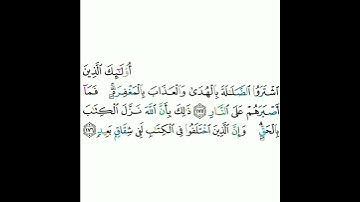 أُوْلَٰٓئِكَ ٱلَّذِينَ
ٱشْتَرَوُاْ ٱلضَّلَٰلَةَ بِٱلْهُدَىٰ وَٱلْعَذَابَ بِٱلْمَغْفِرَةِۚ فَمَآ
أَصْبَرَهُمْ عَلَى ٱلنَّارِ ١٧٥ ذَٰلِكَ بِأَنَّ ٱللَّهَ نَزَّلَ ٱلْكِتَٰبَ
بِٱلْحَقِّۗ وَإِنَّ ٱلَّذِينَ ٱخْتَلَفُواْ فِي ٱلْكِتَٰبِ لَفِي شِقَاقٍۭ بَعِيدٍ ١٧٦